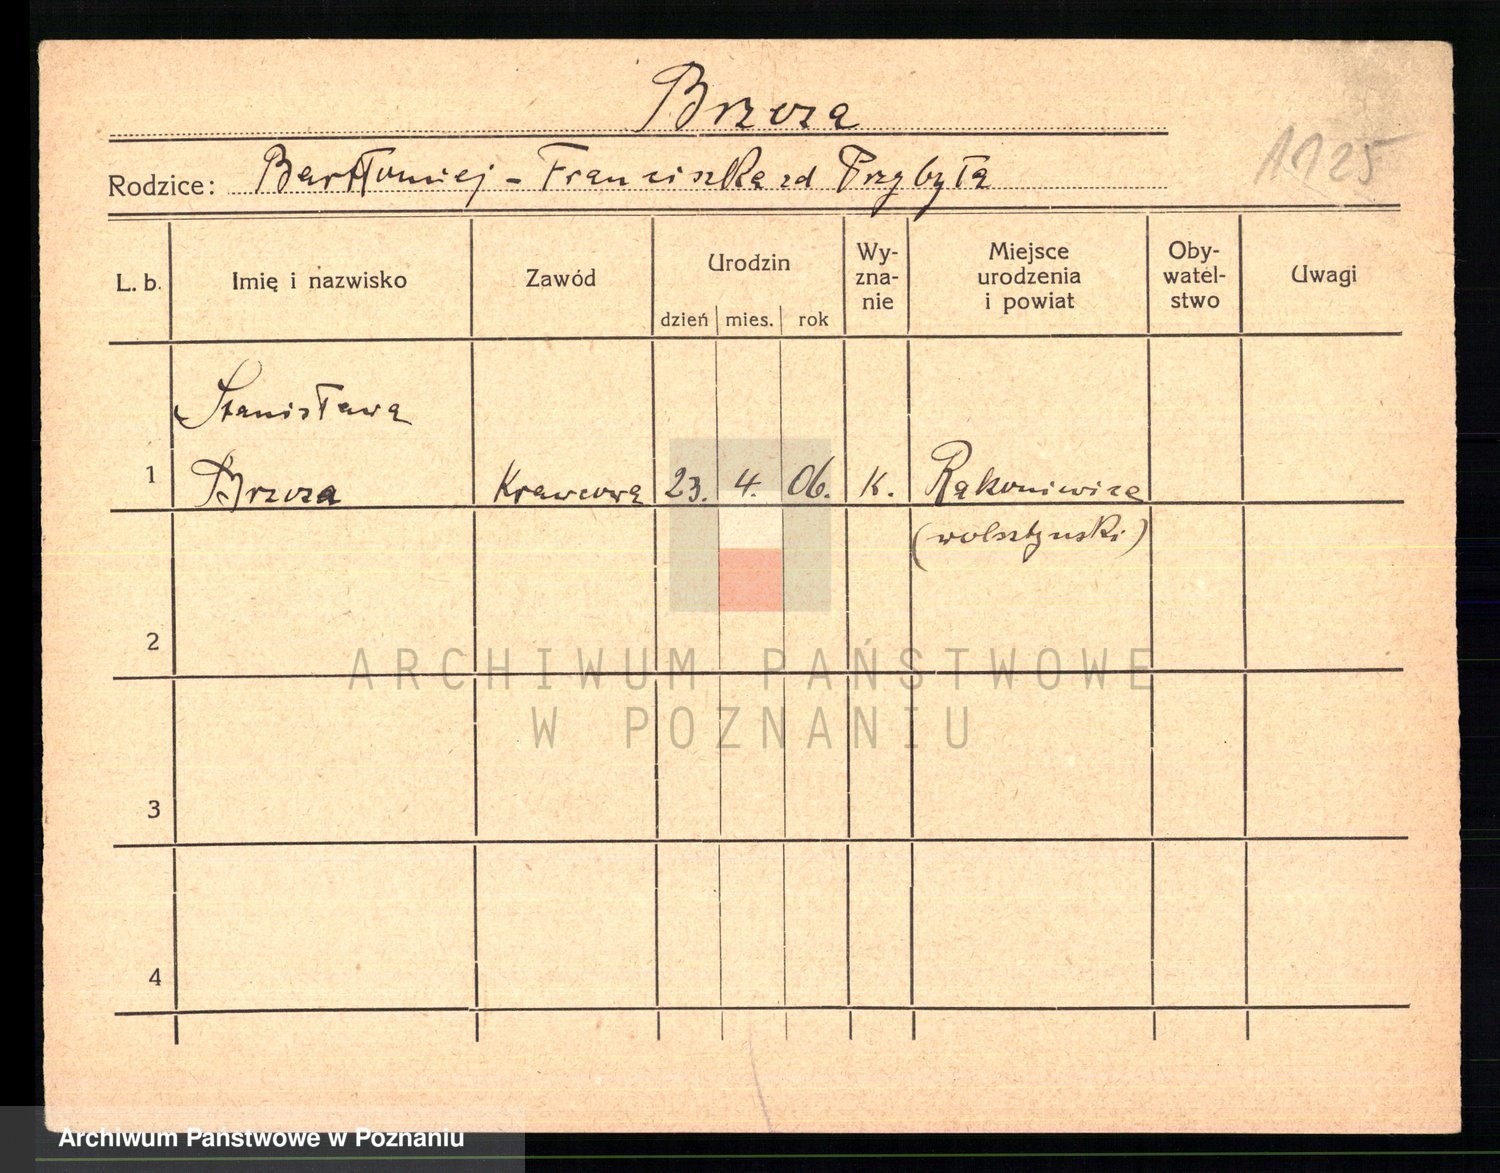 Brzoza
1125
Rodzice: Bartłomiej - Franciszka zd Przybyła
L. b.
Imię i nazwisko
Zawód
Urodzin
dzień mies. rok
Wy-
zna-
nie
Miejsce
urodzenia
i powiat
Oby-
watel-
stwo
Uwagi
Stanisława
1 Brzoza Krawcowa 23. 4. 06. K. Rakoniwice
(wolsztynski)
2
ARCHIWUM PAŃSTWOWE
W POZNANIU
3
4
Archiwum Państwowe w Poznaniu